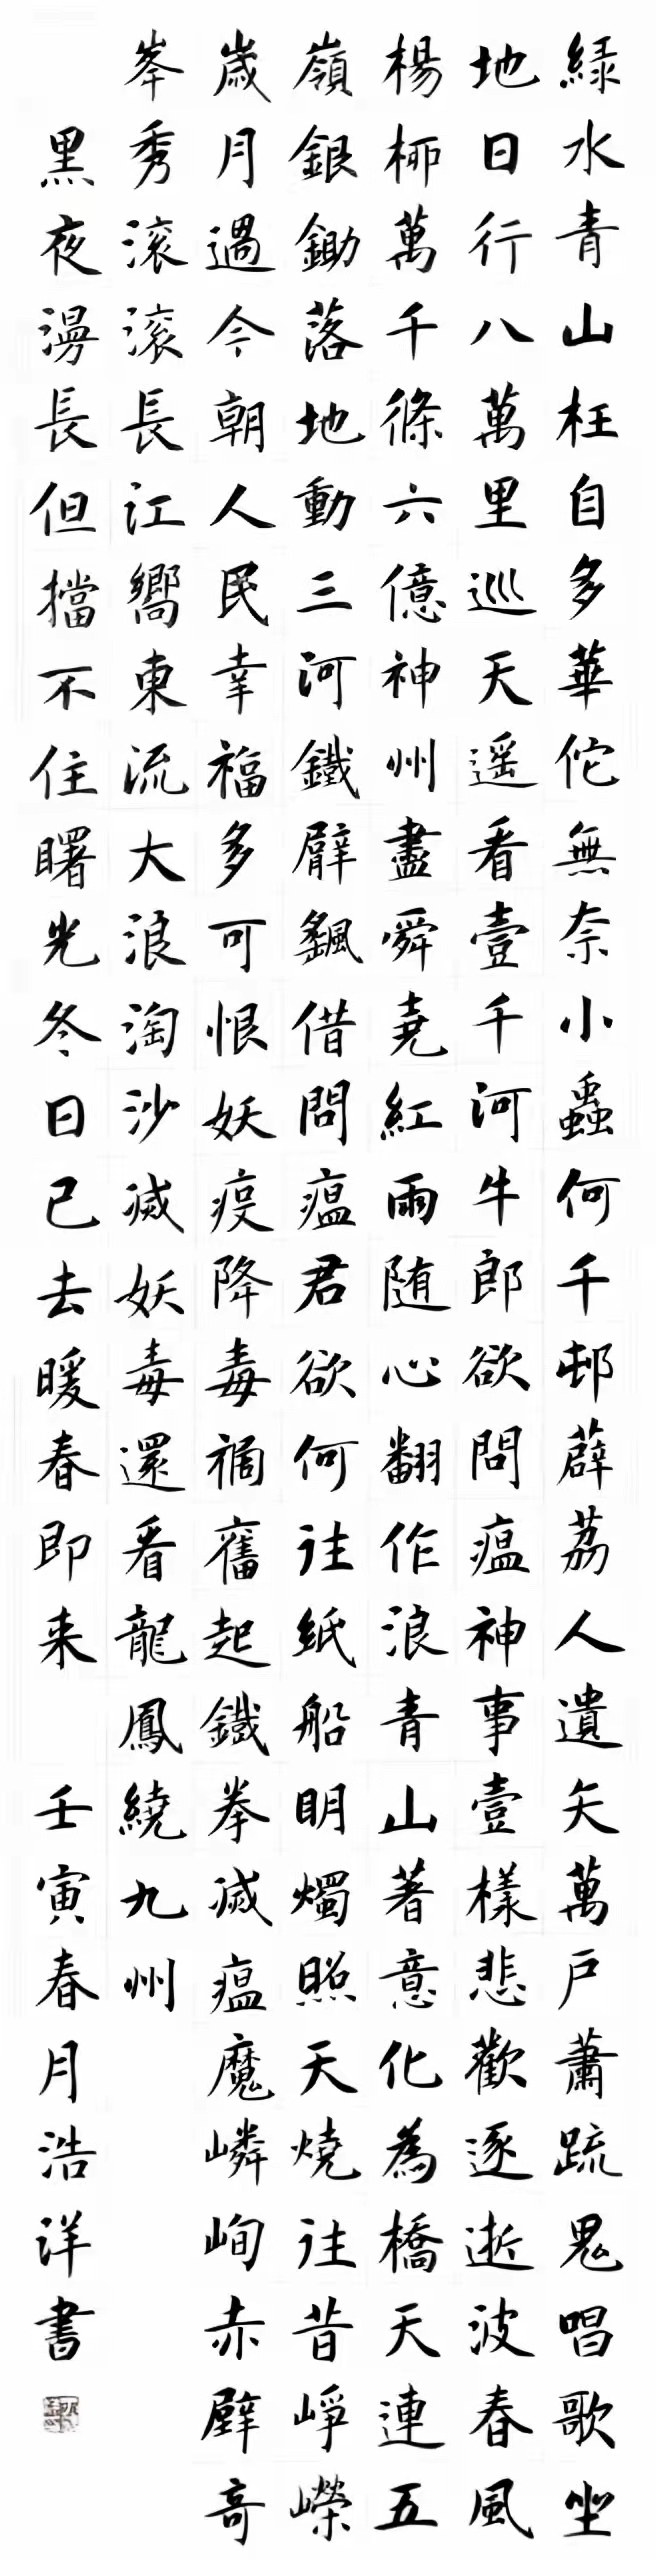 綠水青山枉自多華佗無奈小蟲何千邨薜荔人遺矢萬戶蕭疏鬼唱歌坐
地日行八萬里巡天遥看壹千河牛郎欲問瘟神事壹樣悲歡逐逝波春風
楊柳萬千條六億神州盡舜堯紅雨随心翻作浪青山著意化為橋天連五
嶺銀鋤落地動三河鐵臂飖借問瘟君欲何往紙船明燭照天燒往昔崢嶸
歲月過今朝人民幸福多可恨妖疫降毒禍奮起鐵拳滅瘟魔嶙峋赤壁奇
峯秀滚滚長江嚮東流大浪淘沙滅妖毒還看龍鳳繞九州
黑夜漫長但擋不住曙光冬日已去暖春即来 壬寅春月浩洋書